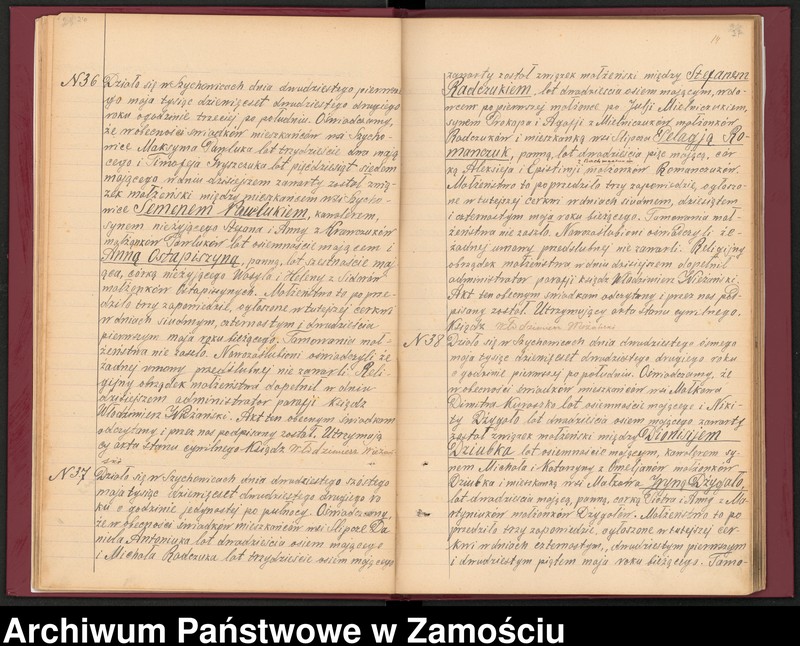 N36 Działo się w Szychowicach dnia dwudziestego pierwsze-
go maja tysiąc dziewięćset dwudziestego drugiego
roku o godzinie trzeciej po południu. Oświadczamy,
że w obecności świadków mieszkańców wsi Szycho-
wice Maksyma Pawluka lat trzydzieście dwa mają
cego i Timofeja Gryszczuka lat pięćdziesiąt siedem
mającego w dniu dzisiejszym zawarty został zwią-
zek małżeński między mieszkańcem wsi Szycho-
wice Semenem Pawlukiem, kawalerem,
synem nieżyjącego Stefana i Anny z Krawczuków
małżonków Pawluków lat osiemnaście mającem i
Anną Ostapiszyną, panną, lat szesnaście mają
jąca, córką nieżyjącego Wasyla i Heleny z
małżonków Ostapiszynych. Małżeństwo to poprze-
dziło trzy zapowiedzi, ogłoszone w tutejszej cerkwi
w dniach siódmym, czternastym i dwudziestu
pierwszym maja roku bieżącego. Tamowania mał-
żeństwa nie zaszło. Nowozaślubieni oświadczyli że
żadnej umowy przedślubnej nie zawarli. Reli-
gijny obrządek małżeństwa dopełnił w dniu
dzisiejszym administrator parafji ksiądz
Włodzimierz Wieżański. Akt ten obecnym świadkom
odczytany i przez nas podpisany został. Utrzymują
cy akta stanu cywilnego Ksiądz Włodzimierz
N37 Działo się w Szychowicach dnia dwudziestego szóstego
maja tysiąc dziewięćset dwudziestego drugiego ro
ku o godzinie jedynastej po północy. Oświadczamy,
że w obecności świadków mieszkańców wsi Ślipcze Da
niela Antoniuka lat dwadzieścia osiem mającego
i Michała Radczuka lat trzydzieście osiem mającego
14
zawarty został związek małżeński między Stefanem
Radczukiem, lat dwadzieścia osiem mającym, wdo-
wcem po pierwszej małżonce po Julji Mielniczukiem,
synem Prokopa i Agafji z Mielniczuków małżonków
Radczuków i mieszkanką wsi Ślipcze Pelagją Ro-
mańczuk, panną, lat dwadzieścia pięć mającą, cór
ką Aleksieja i Epistimji małżonków Romańczuków.
Małżeństwo to poprzedziło trzy zapowiedzie, ogłoszo-
ne w tutejszej cerkwi w dniach siódmem, dziesiątem
i czternastym maja roku bieżącego. Tamowania mał-
żeństwa nie zaszło. Nowozaślubieni oświadczyli że
żadnej umowy przedślubnej nie zawarli. Religijny
obrządek małżeństwa w dniu dzisiejszem dopełnił
administrator parafji ksiądz Włodzimierz Wieżański.
Akt ten obecnym świadkom odczytany i przez nas pod-
pisany został. Utrzymujący akta stanu cywilnego.
Ksiądz Włodzimierz
N38 Działo się w Szychowicach dnia dwudziestego ósmego
maja tysiąc dziewięćset dwudziestego drugiego roku
o godzinie pierwszej po południu. Oświadczamy, że
w obecności świadków mieszkańców wsi Małków
Dimitra lat osiemnaście mającego i Niki-
ty Dżygało lat dwadzieścia osiem mającego zawarty
został związek małżeński między Dionizjem
Dziubka lat osiemnaście mającym, kawalerem sy-
nem Michała i Katarzyny z Omeljanów małżonków
Dziubka i mieszkanką wsi Małków Iryną Dżygało,
lat dwadzieścia mającą, panną, córką Piotra i Anny z Ma-
rtyniuków małżonków Dżygałow. Małżeństwo to po
przedziło trzy zapowiedzie, ogłoszone w tutejszej cer-
kwi w dniach czternastym, dwudziestym pierwszym
i dwudziestym piątem maja roku bieżącego. Tamo-
Archiwum Państwowe w Zamościu